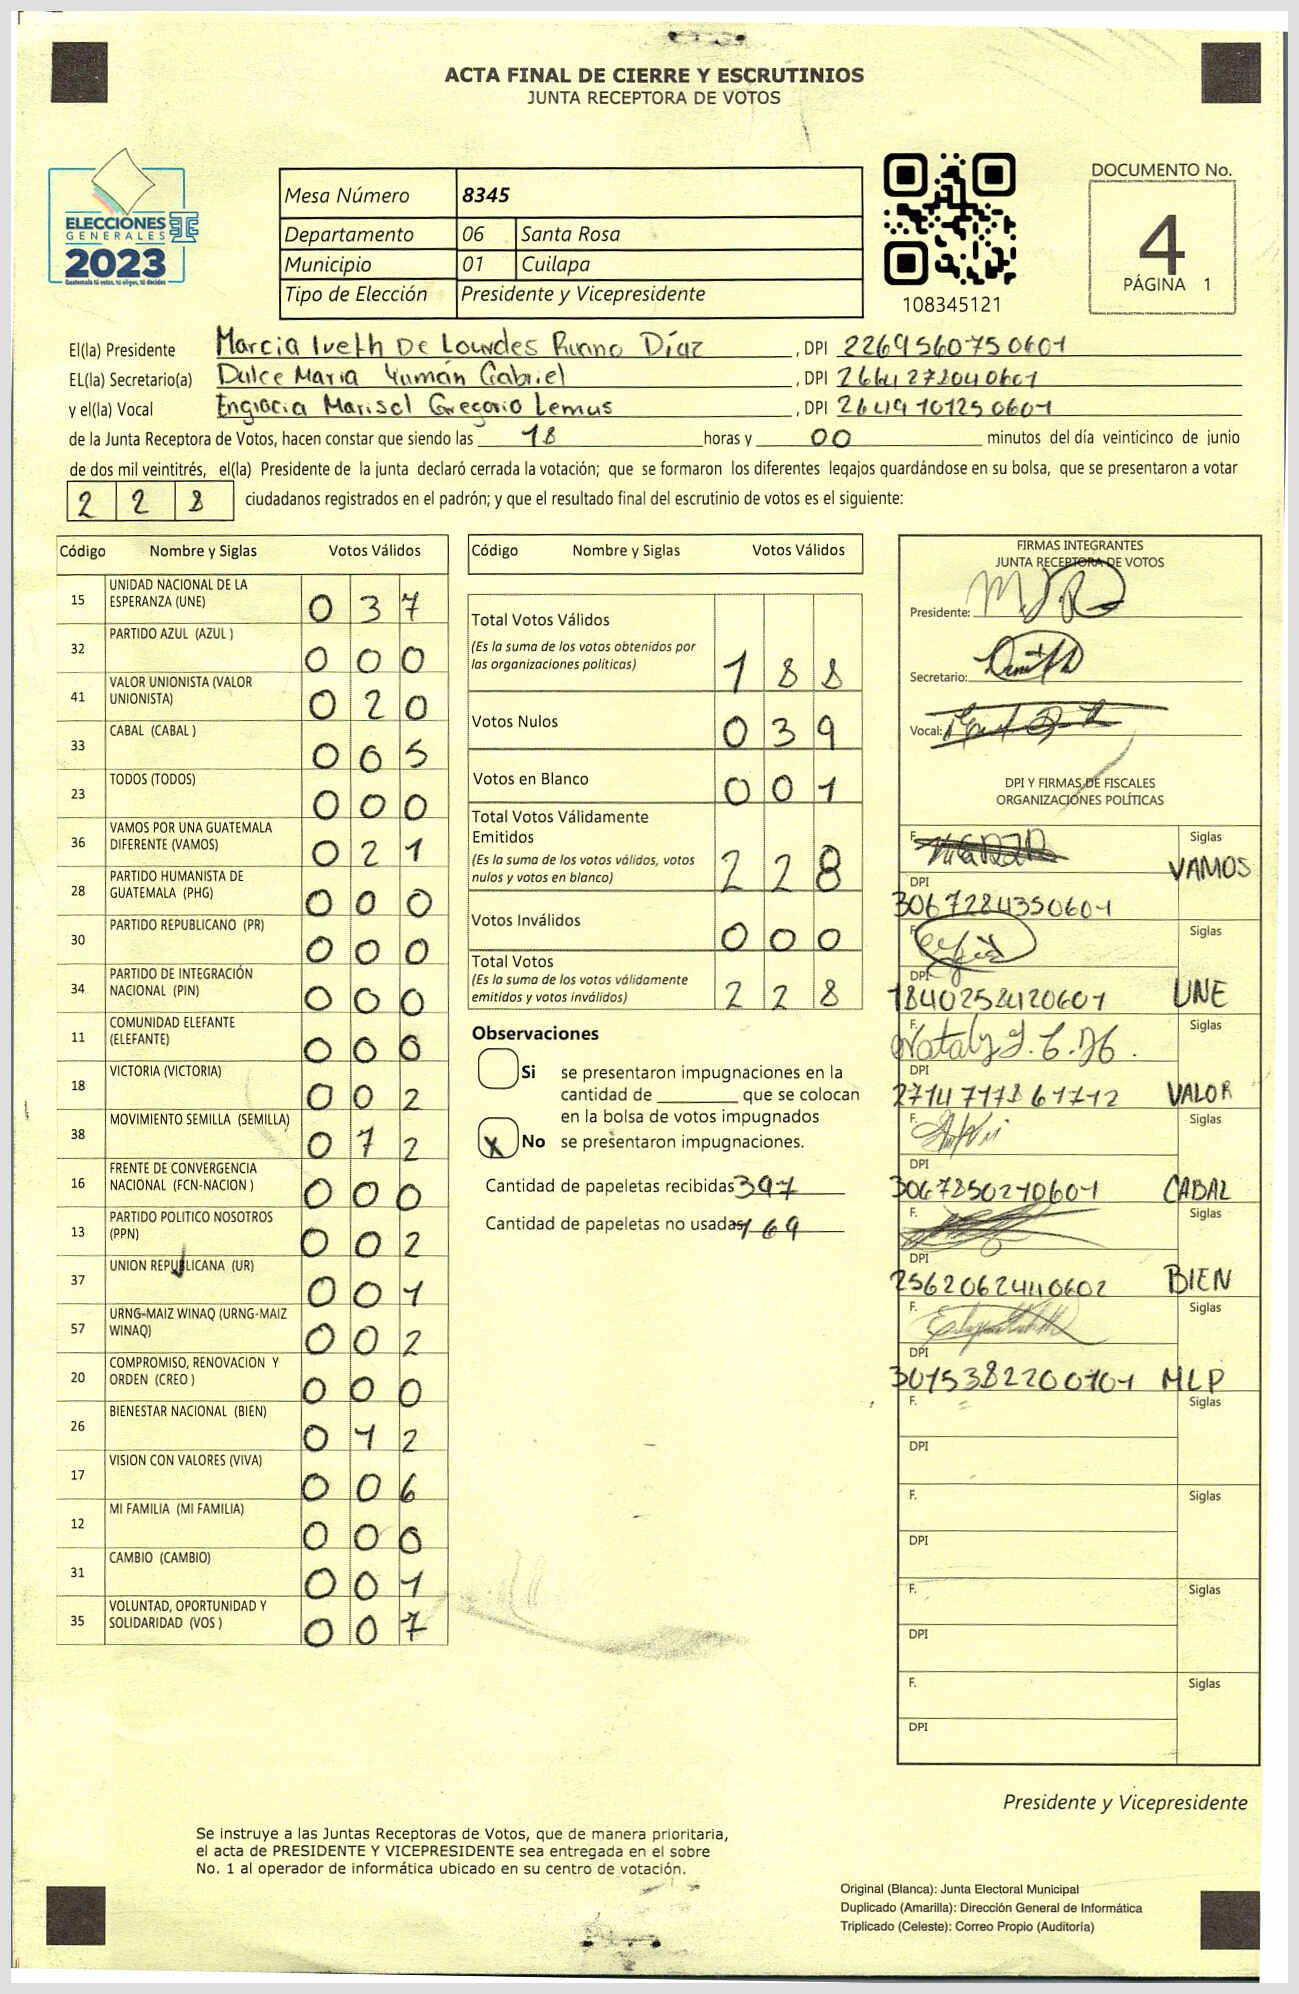 ACTA FINAL DE CIERRE Y ESCRUTINIOS
JUNTA RECEPTORA DE VOTOS
ELECCIONES
GENERALES
2023
Guatemala tú votas, tú eliges, tú decides
Mesa Número 8345
Departamento 06 Santa Rosa
Municipio 01 Cuilapa
Tipo de Elección Presidente y Vicepresidente
108345121
DOCUMENTO No.
4
PÁGINA 1
El(la) Presidente Marcia Iveth De Lourdes Ruano Díaz, DPI 2269560750601
EL(la) Secretario(a) Dulce Maria Yumán Gabriel, DPI 2664278040601
y el(la) Vocal Engracia Marisol Gregorio Lemus, DPI 2649101250601
de la Junta Receptora de Votos, hacen constar que siendo las 18 horas y 00 minutos del día veinticinco de junio
de dos mil veintitrés, el(la) Presidente de la junta declaró cerrada la votación; que se formaron los diferentes legajos guardándose en su bolsa, que se presentaron a votar
2 2 8 ciudadanos registrados en el padrón; y que el resultado final del escrutinio de votos es el siguiente:
Código Nombre y Siglas Votos Válidos
15 UNIDAD NACIONAL DE LA ESPERANZA (UNE) 0 3 7
32 PARTIDO AZUL (AZUL ) 0 0 0
41 VALOR UNIONISTA (VALOR UNIONISTA) 0 2 0
33 CABAL (CABAL ) 0 0 5
23 TODOS (TODOS) 0 0 0
36 VAMOS POR UNA GUATEMALA DIFERENTE (VAMOS) 0 2 1
28 PARTIDO HUMANISTA DE GUATEMALA (PHG) 0 0 0
30 PARTIDO REPUBLICANO (PR) 0 0 0
34 PARTIDO DE INTEGRACIÓN NACIONAL (PIN) 0 0 0
11 COMUNIDAD ELEFANTE (ELEFANTE) 0 0 0
18 VICTORIA (VICTORIA) 0 0 2
38 MOVIMIENTO SEMILLA (SEMILLA) 0 7 2
16 FRENTE DE CONVERGENCIA NACIONAL (FCN-NACION ) 0 0 0
13 PARTIDO POLITICO NOSOTROS (PPN) 0 0 2
37 UNION REPUBLICANA (UR) 0 0 1
57 URNG-MAIZ WINAQ (URNG-MAIZ WINAQ) 0 0 2
20 COMPROMISO, RENOVACION Y ORDEN (CREO ) 0 0 0
26 BIENESTAR NACIONAL (BIEN) 0 1 2
17 VISION CON VALORES (VIVA) 0 0 6
12 MI FAMILIA (MI FAMILIA) 0 0 0
31 CAMBIO (CAMBIO) 0 0 1
35 VOLUNTAD, OPORTUNIDAD Y SOLIDARIDAD (VOS ) 0 0 7
Código Nombre y Siglas Votos Válidos
Total Votos Válidos
(Es la suma de los votos obtenidos por
las organizaciones políticas) 1 8 8
Votos Nulos 0 3 9
Votos en Blanco 0 0 1
Total Votos Válidamente
Emitidos
(Es la suma de los votos válidos, votos
nulos y votos en blanco) 2 2 8
Votos Inválidos 0 0 0
Total Votos
(Es la suma de los votos válidamente
emitidos y votos inválidos) 2 2 8
Observaciones
Si se presentaron impugnaciones en la
cantidad de ________ que se colocan
en la bolsa de votos impugnados
X No se presentaron impugnaciones.
Cantidad de papeletas recibidas 397
Cantidad de papeletas no usadas 169
FIRMAS INTEGRANTES
JUNTA RECEPTORA DE VOTOS
Presidente:
Secretario:
Vocal:
DPI Y FIRMAS DE FISCALES
ORGANIZACIONES POLÍTICAS
F. Siglas VAMOS
DPI 3067284350601
F. Siglas UNE
DPI 1840258420601
F. Siglas VALOR
DPI
F. Siglas CABAL
DPI 3067850270601
F. Siglas BIEN
DPI 2562062440602
F. Siglas MLP
DPI 3015382200101
F. Siglas
DPI
F. Siglas
DPI
F. Siglas
DPI
F. Siglas
DPI
Presidente y Vicepresidente
Se instruye a las Juntas Receptoras de Votos, que de manera prioritaria,
el acta de PRESIDENTE Y VICEPRESIDENTE sea entregada en el sobre
No. 1 al operador de informática ubicado en su centro de votación.
Original (Blanca): Junta Electoral Municipal
Duplicado (Amarilla): Dirección General de Informática
Triplicado (Celeste): Correo Propio (Auditoría)